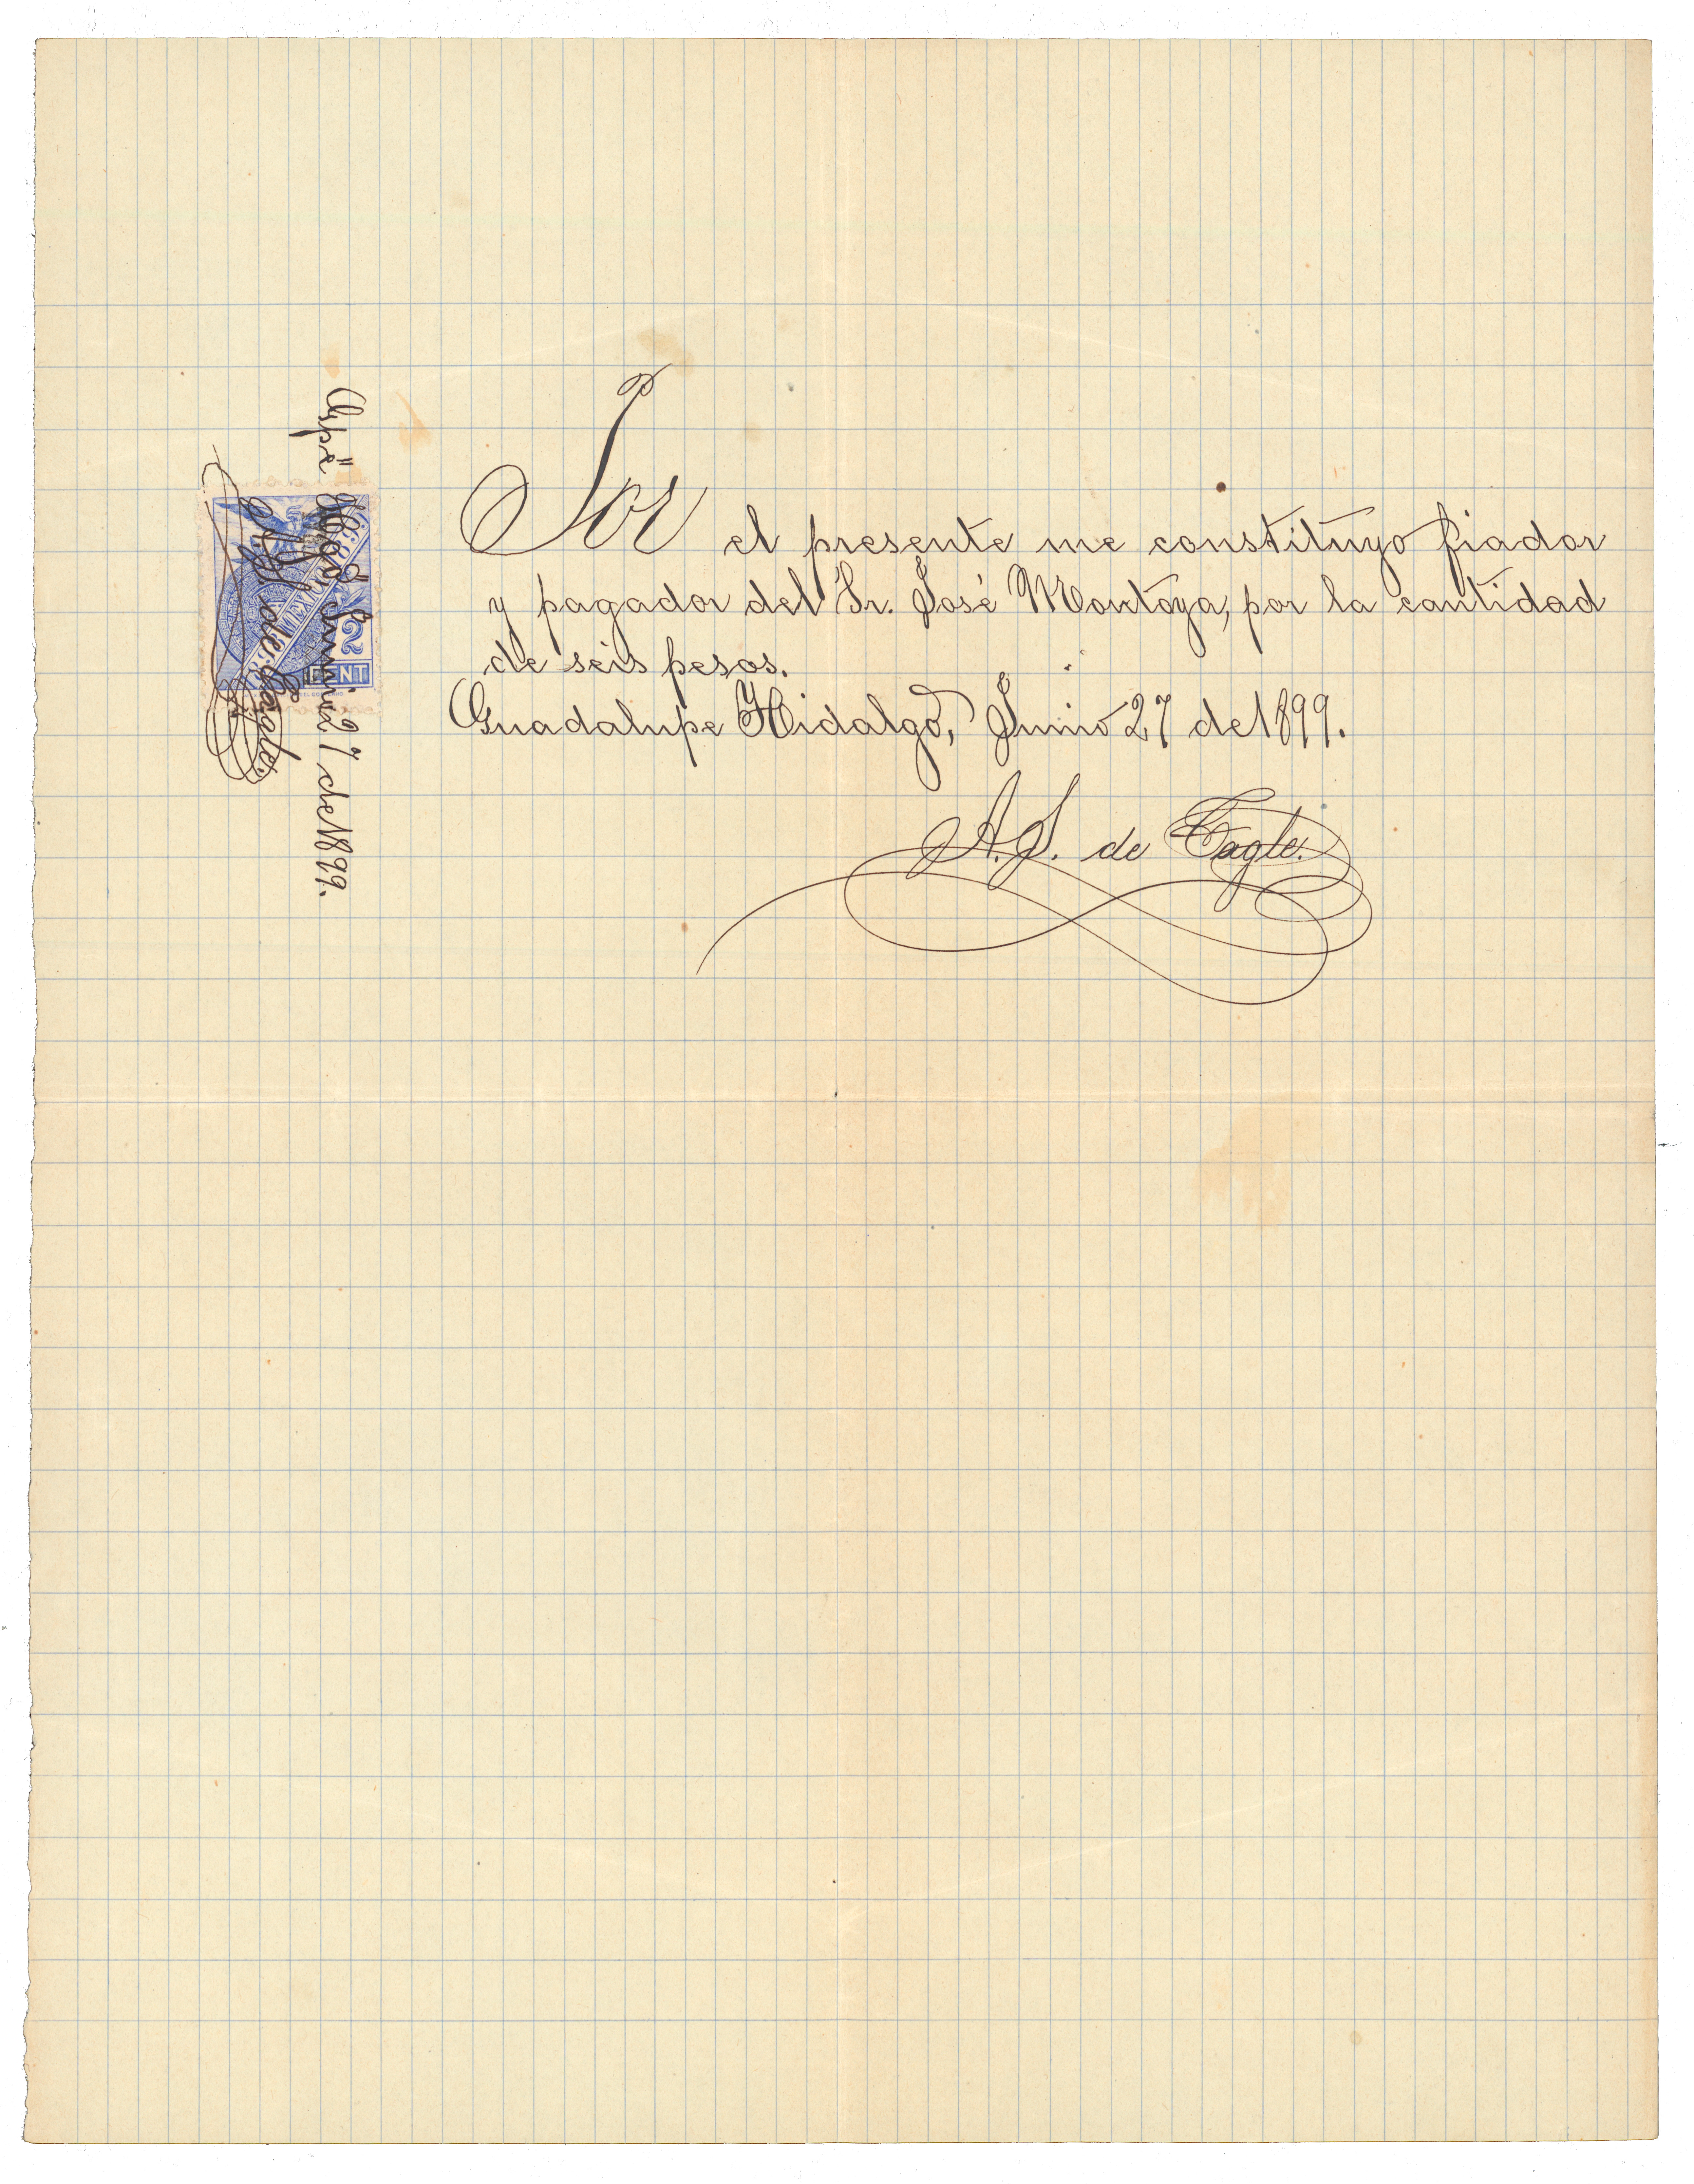 Por el presente me constituyo fiador
y pagador del Sr. José Montoya, por la cantidad
de seis pesos.
Guadalupe Hidalgo, Junio 27 de 1899.
A. S. de Tagle.
Hgo. Junio 27 de 1899.
de Tagle.
MEXICO
2
CENT